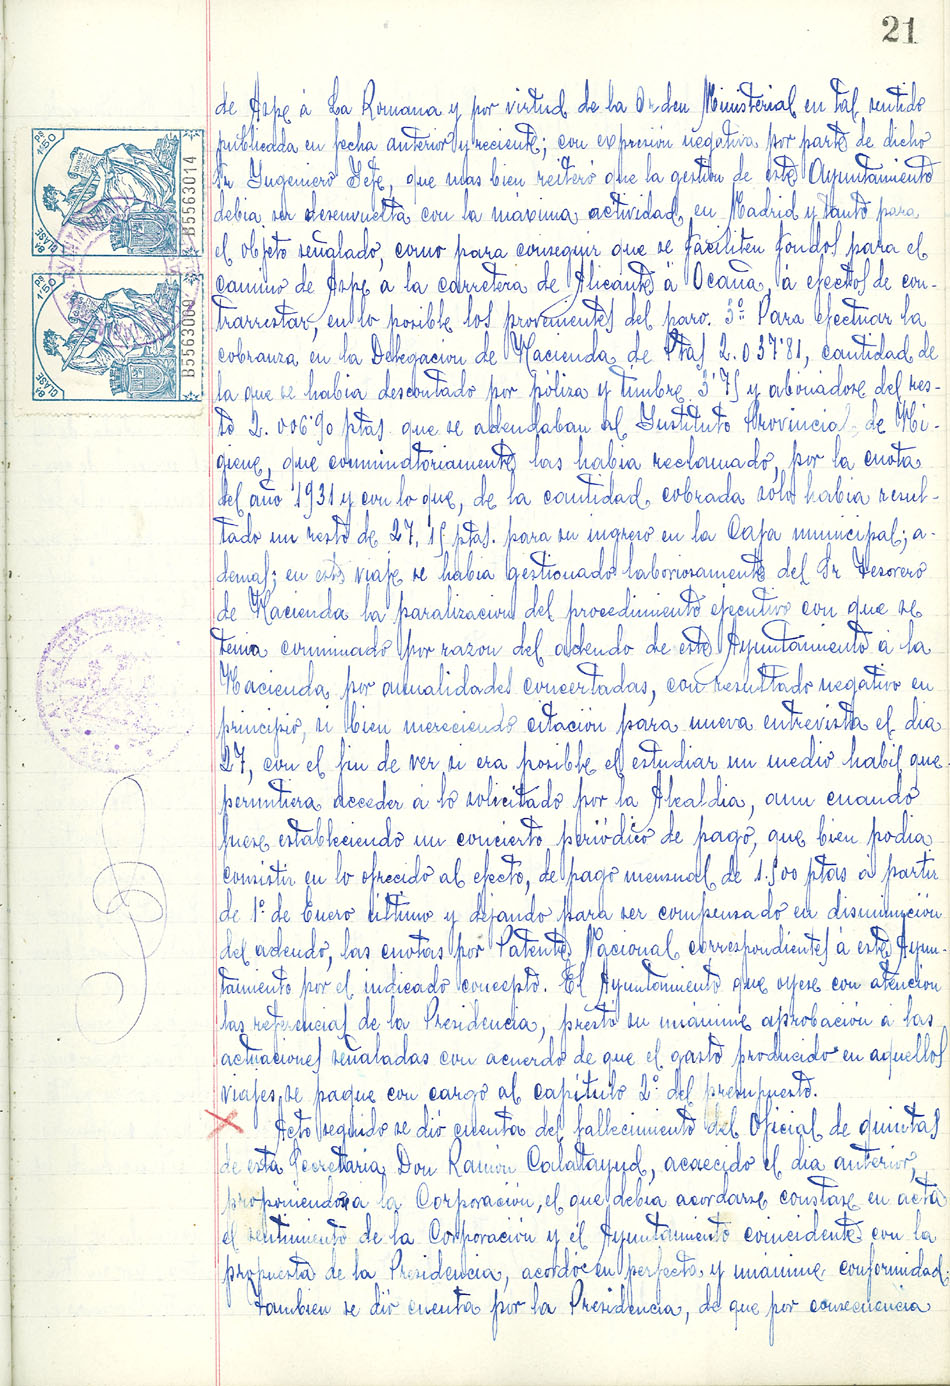 21
PS 1'50
8ª CLASE
B5563014
PS 1'50
8ª CLASE
B5563009
de Aspe á La Romana y por virtud de la Orden Ministerial en tal sentido
publicada en fecha anterior y reciente; con expresión negativa por parte de dicho
Sr Yugeniero Gefe, que mas bien reiteró que la gestión de este Ayuntamiento
debia ser desenvuelta con la maxima actividad en Madrid y tanto para
el objeto señalado, como para conseguir que se faciliten fondos para el
camino de Aspe a la carretera de Alicante á Ocaña, á efectos de con-
trarrestar, en lo posible los provenientes del paro. 3º Para efectuar la
cobranza en la Delegacion de Hacienda de Ptas 2.037'81, cantidad de
la que se habia descontado por póliza y timbre 3'75 y abonadose del res-
to 2.006'90 ptas. que se adendaban al Ynstituto Provincial de Hi-
giene, que conminatoriamente las habia reclamado, por la cuota
del año 1931 y con lo que, de la cantidad cobrada solo habia resul-
tado un resto de 27,15 ptas. para su ingreso en la Caja municipal; a-
demas; en este viaje se habia gestionado laboriosamente del Sr Tesorero
de Hacienda la paralizacion del procedimiento ejecutivo con que se
tenia conminado por razon del adendo de este Ayuntamiento á la
Hacienda por anualidades concertadas, con resultado negativo en
principio, si bien mereciendo citación para nueva entrevista el dia
27, con el fin de ver si era posible el estudiar un medio habil que
permitiera acceder á lo solicitado por la Alcaldia, aun cuando
fuese estableciendo un concierto periódico de pago, que bien podia
consistir en lo ofrecido al efecto, de pago mensual de 1.500 ptas á partir
de 1º de Enero último y dejando para ser compensado en disminución
del adendo, las cuotas por Patente Nacional correspondientes á este Ayun-
tamiento por el indicado concepto. El Ayuntamiento que oyese con atención
las referencias de la Presidencia, prestó su unánime aprobación a las
actuaciones señaladas con acuerdo de que el gasto producido en aquellos
viajes se pague con cargo al capítulo 2º del presupuesto.
Acto seguido se dió cuenta del fallecimiento del Oficial de quintas
de esta Secretaria Don Ramón Calatayud, acaecido el dia anterior,
proponiendose a la Corporación, el que debia acordarse constase en acta
el sentimiento de la Corporación y el Ayuntamiento coincidente con la
propuesta de la Presidencia, acordóse en perfecta y unánime conformidad.
Tambien se dió cuenta por la Presidencia, de que por consecuencia